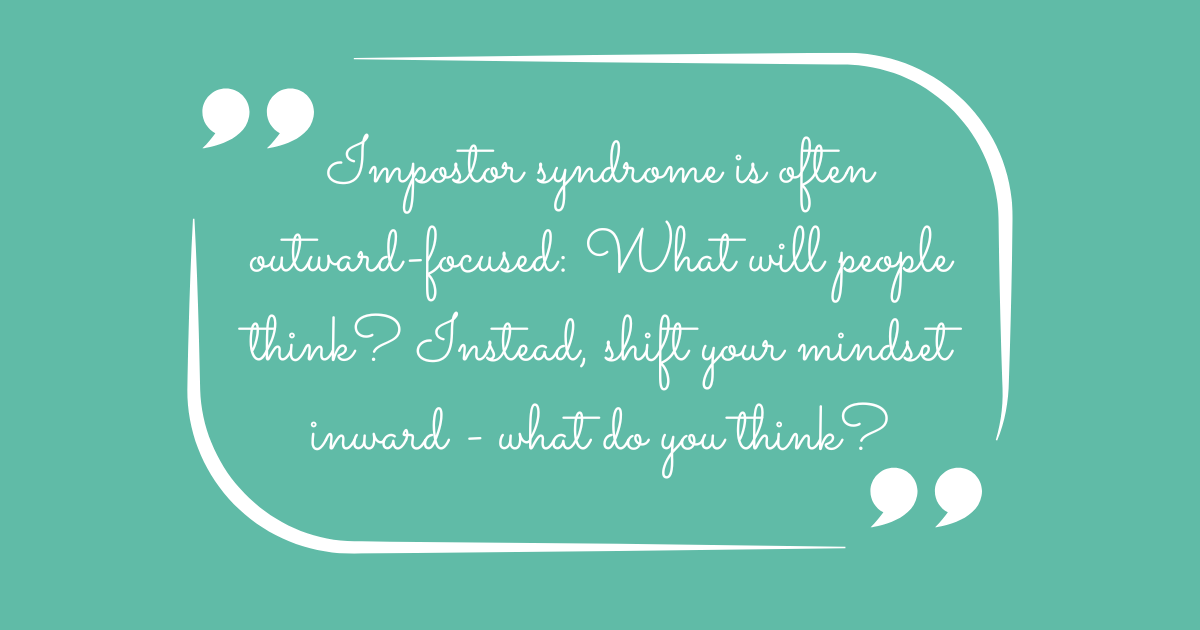 Impostor syndrome is often
outward-focused: What will people
think? Instead, shift your mindset
inward - what do you think?